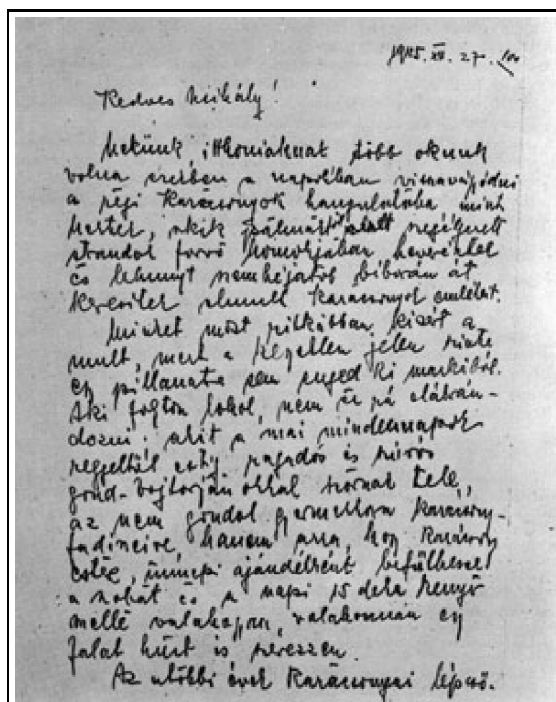 1945. XII. 27.
Kedves Mihály!
Nekünk itthoniaknak több okunk
volna ezekben a napokban visszavágódni
a régi Karácsonyok hangulatába mint
Nektek, akik pálmák alatt
strandok forró homokjában hevertek
és lehunyt szemhéjatok bíborán át
keresitek elmult karácsonyok emlékét.
Minket most ritkábban kísért a
mult, mert a kegyetlen jelen szinte
egy pillanatra sem enged ki markából.
Aki fogton lohol, nem ér rá ábrán-
dozni; akit a mai mindennapok
reggeltől estig ragadós és szúrós
gond-bojtorjánokkal szórnak tele,
az nem gondol gyermekkora karácsony-
fadíszeire, hanem arra, hogy Karácsony
estén, ünnepi ajándékként befűthesse
a szobát és a napi 15 deka kenyér
mellé valahogyan, valahonnan egy
falat húst is szerezzen.
Az utóbbi évek Karácsonyai